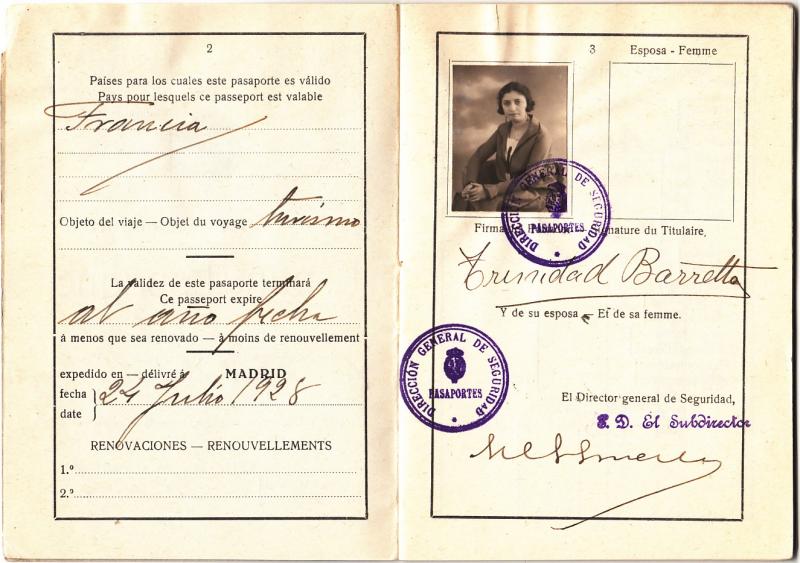 2
Países para los cuales este pasaporte es válido
Pays pour lesquels ce passeport est valable
Francia
Objeto del viaje — Objet du voyage turismo
La validez de este pasaporte terminará
Ce passeport expire
al año fecha
á menos que sea renovado — à moins de renouvellement
expedido en — délivré à MADRID
fecha
date
24 Julio 1928
RENOVACIONES — RENOUVELLEMENTS
1.º
2.º
3
Esposa - Femme
DIRECCIÓN GENERAL DE SEGURIDAD
PASAPORTES
Firma Signature du Titulaire,
Trinidad Barretto
Y de su esposa — Et de sa femme.
DIRECCIÓN GENERAL DE SEGURIDAD
PASAPORTES
El Director general de Seguridad,
El Subdirector